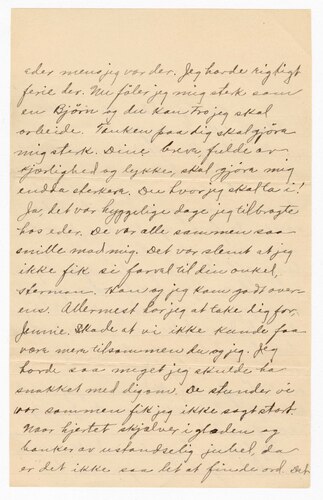 eder mens jeg var der. Jeg havde rigtigt
ferie der. Nu føler jeg mig sterk som
en Bjørn og du kan tro jeg skal
arbeide. Tanken paa dig skal gjøra
mig sterk. Dine breve fulde av
kjærlighed og lykke, skal gjøra mig
endda sterkera. Du hvor jeg skal ta i!
Ja, det var hyggelige dage jeg tilbragte
hos eder. De var alle sammen saa
snille mod mig. Det var slemt at jeg
ikke fik si farvel til din onkel,
Herman. Han og jeg kom godt over-
ens. Allermest har jeg at take dig for,
Jennie. Skade at vi ikke kunde faa
være mere tilsammen du og jeg. Jeg
havde saa meget jeg skulde ha
snakket med dig om. De stunder vi
var sammen fik jeg ikke sagt stort.
Naar hjertet skjælver i glæden og
banker av ustandselig jubel, da
er det ikke saa let at finde ord. Det